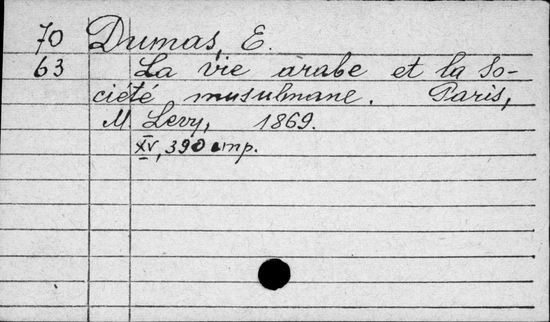 70 Dumas, E.
63 La vie arabe et la So-
ciété musulmane. Paris,
M. Levy, 1869.
XV, 390 cmp.